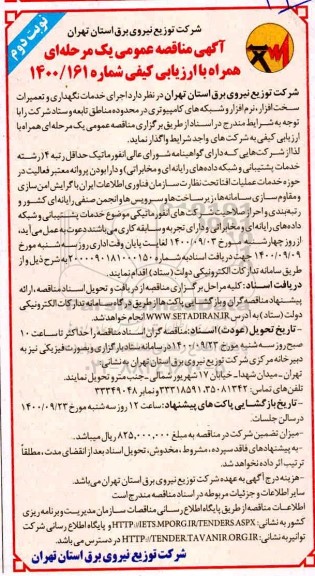 نوبت دوم
شرکت توزیع نیروی برق استان تهران
آگهی مناقصه عمومی یک مرحله‌ای
همراه با ارزیابی کیفی شماره ۱۴۰۰/۱۶۱
شرکت توزیع نیروی برق استان تهران در نظر دارد اجرای خدمات نگهداری و تعمیرات
سخت افزار، نرم افزار و شبکه های کامپیوتری در محدوده مناطق تابعه و ستاد شرکت را با
توجه به شرایط مندرج در اسناد از طریق برگزاری مناقصه عمومی یک مرحله‌ای همراه با
ارزیابی کیفی به شرکت های واجد شرایط واگذار نماید.
لذا از شرکت هایی که دارای گواهینامه شورای عالی انفورماتیک حداقل رتبه ۴ (رشته
خدمات پشتیبانی و شبکه داده‌های رایانه ای و مخابراتی) و دارا بودن پروانه معتبر فعالیت در
حوزه خدمات عملیات افتا تحت نظارت سازمان فناوری اطلاعات ایران با گرایش امن سازی
و مقاوم سازی سامانه‌ها، زیرساخت‌ها و سرویس ها و انجمن صنفی رایانه ای کشور و
رتبه‌بندی و احراز صلاحیت شرکت های انفورماتیکی موضوع خدمات پشتیبانی و شبکه
داده های رایانه ای و مخابراتی و دارای تجربه و سابقه کاری می باشند دعوت به عمل می آید،
از روز چهارشنبه مورخ ۱۴۰۰/۰۹/۰۳ لغایت پایان وقت اداری روز سه شنبه مورخ
۱۴۰۰/۰۹/۰۹ جهت دریافت اسناد به شماره ۲۰۰۰۰۹۰۱۸۱۰۰۰۱۵۰ به شرح ذیل و از
طریق سامانه تدارکات الکترونیکی دولت (ستاد) اقدام نمایند.
دریافت اسناد: کلیه مراحل برگزاری مناقصه از دریافت و تحویل اسناد مناقصه، ارائه
پیشنهاد مناقصه گران و بازگشایی پاکت ها از طریق درگاه سامانه تدارکات الکترونیکی
دولت (ستاد) به آدرس WWW.SETADIRAN.IR انجام خواهد شد.
- تاریخ تحویل (عودت) اسناد: مناقصه گران اسناد مناقصه را حداکثر تا ساعت ۱۰
صبح روز سه شنبه مورخ ۱۴۰۰/۰۹/۲۳ در سامانه ستاد بارگزاری و بصورت فیزیکی نیز به
دبیرخانه مرکزی شرکت توزیع نیروی برق استان تهران به نشانی:
تهران - میدان شهدا - خیابان ۱۷ شهریور شمالی - جنب مترو تحویل نمایند.
تلفن های تماس: ۳۵۰۸۱۳۴۲، ۳۳۳۱۸۵۹۱ و نمابر ۳۳۳۴۹۰۴۸
- تاریخ بازگشایی پاکت های پیشنهاد: ساعت ۱۲ روز سه شنبه مورخ ۱۴۰۰/۰۹/۲۳
در سالن جلسات.
- میزان تضمین شرکت در مناقصه به مبلغ ۸۲۵,۰۰۰,۰۰۰ ریال میباشد.
- به پیشنهادهای فاقد سپرده، مشروط، مخدوش، تحویل اسناد بعد از انقضای مدت، مطلقا
ترتیب اثر داده نخواهد شد.
- هزینه درج آگهی به عهده شرکت توزیع نیروی برق استان تهران می باشد.
سایر اطلاعات و جزئیات مربوطه در اسناد مناقصه مندرج است
اطلاعات مناقصه از طریق پایگاه اطلاع رسانی مناقصات سازمان مدیریت و برنامه ریزی
کشور به نشانی: HTTP://IETS.MPORG.IR/TENDERS.ASPX و پایگاه اطلاع رسانی شرکت
توانیر به نشانی: HTTP://TENDER.TAVANIR.ORG.IR در دسترس می باشد.
شرکت توزیع نیروی برق استان تهران